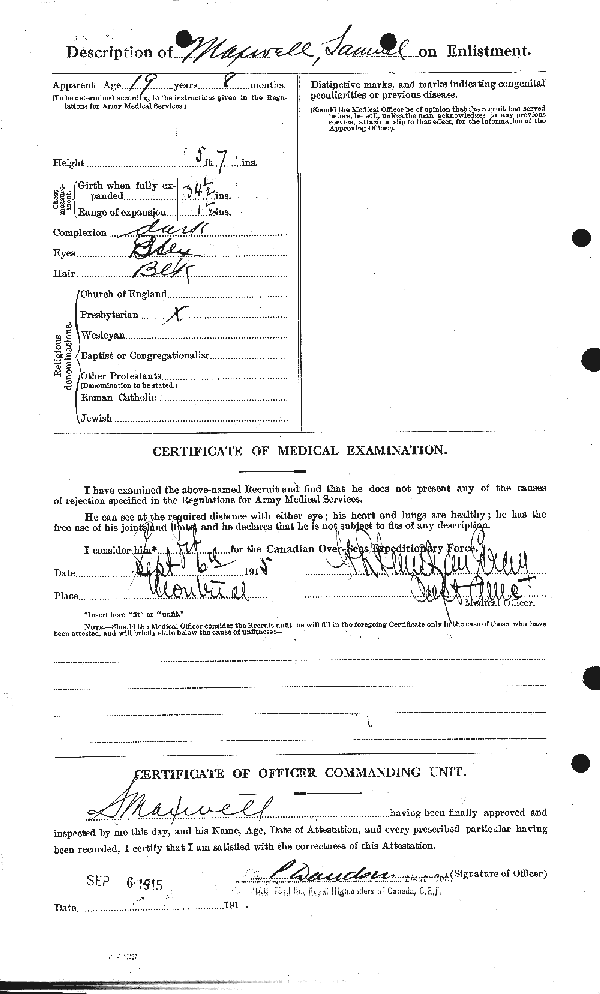 Description of Maxwell, Samuel on Enlistment.
Apparent Age 19 years 8 months.
(To be determined according to the instructions given in the Regu-
lations for Army Medical Services.)
Distinctive marks, and marks indicating congenital
peculiarities or previous disease.
(Should the Medical Officer be of opinion that the recruit has served
before, he will, unless the man acknowledges to any previous
service, attach a slip to that effect, for the information of the
Approving Officer).
Height 5 ft. 7 ins.
Chest
measure-
ment.
Girth when fully ex-
panded 34½ ins.
Range of expansion ins.
Complexion Dark
Eyes
Hair Blk
Religious
denominations.
Church of England
Presbyterian X
Wesleyan
Baptist or Congregationalist
Other Protestants
(Denomination to be stated.)
Roman Catholic
Jewish
CERTIFICATE OF MEDICAL EXAMINATION.
I have examined the above-named Recruit and find that he does not present any of the causes
of rejection specified in the Regulations for Army Medical Services.
He can see at the required distance with either eye; his heart and lungs are healthy; he has the
free use of his joints and limbs, and he declares that he is not subject to fits of any description.
I consider him* fit for the Canadian Over-Seas Expeditionary Force.
Date Sept 6th 1915
Place Montreal
Medical Officer.
*Insert here "fit" or "unfit."
NOTE.—Should the Medical Officer consider the Recruit unfit, he will fill in the foregoing Certificate only in the case of those who have
been attested, and will briefly state below the cause of unfitness:—
CERTIFICATE OF OFFICER COMMANDING UNIT.
S Maxwell having been finally approved and
inspected by me this day, and his Name, Age, Date of Attestation, and every prescribed particular having
been recorded, I certify that I am satisfied with the correctness of this Attestation.
(Signature of Officer)
SEP 6 1915
Royal Highlanders of Canada, C.E.F.
Date 191